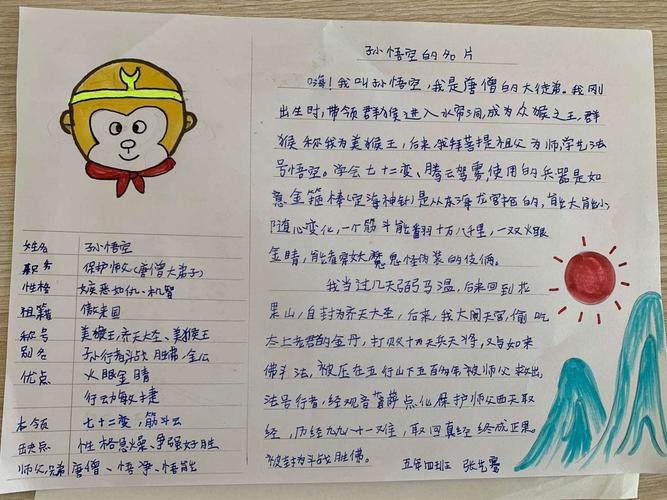 姓名 孙悟空
职务 保护师父(唐僧大弟子)
性格 嫉恶如仇、机警
祖籍 傲来国
称号 美猴王、齐天大圣、美猴王
别名 孙行者、斗战胜佛、金公
优点 火眼金睛
行动敏捷
本领 七十二变,筋斗云
缺点 性格急燥、争强好胜
师父兄弟 唐僧、悟净、悟能
孙悟空的名片
嗨!我叫孙悟空,我是唐僧的大徒弟。我刚
出生时,带领群猴进入水帘洞,成为众猴之王,群
猴称我为美猴王,后来,我拜菩提祖父为师,学生法
号悟空。学会七十二变、腾云驾雾,使用的兵器是如
意金箍棒(定海神针)是从东海龙宫抢的,能大能小,
随心变化,一个筋斗能翻十万八千里,一双火眼
金睛,能看穿妖魔鬼怪伪装的伎俩。
我当过几天弼马温,后来回到花
果山,自封为齐天大圣,后来,我大闹天宫,偷吃
太上老君的金丹,打败十万天兵天将,又与如来
佛斗法,被压在五行山下五百年,被师父救出,
法号行者,经观音菩萨点化保护师父西天取
经,历经九九八十一难,取回真经终成正果。
被封为斗战胜佛。
五年四班 张